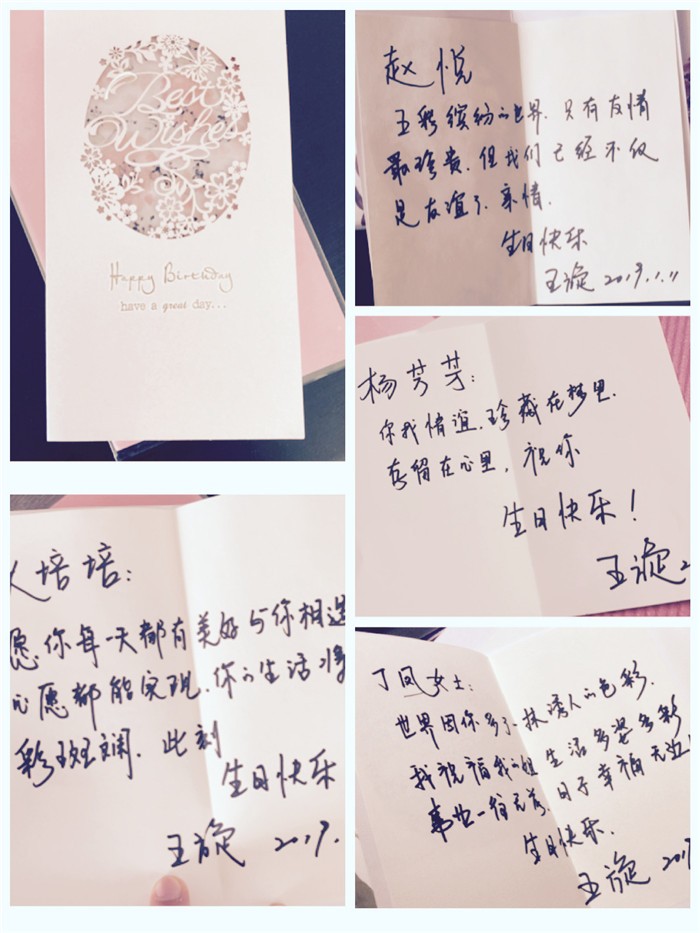 Best
Wishes
Happy Birthday
have a great day...
赵悦
五彩缤纷的世界.只有友情
最珍贵.但我们已经不仅
是友谊了.亲情.
生日快乐
王旋 2017.1.11
杨芳芳:
你我情谊.珍藏在梦里.
存留在心里,祝你
生日快乐!
王旋
培培:
愿你每一天都有美好与你相遇
心愿都能实现.你的生活将
彩斑斓.此刻
生日快乐
王旋 2017.
丁凤女士:
世界因你多了一抹诱人的色彩.
我祝福我的姐 生活多姿多彩
事业一往无前.日子幸福无边
生日快乐.
王旋 2017